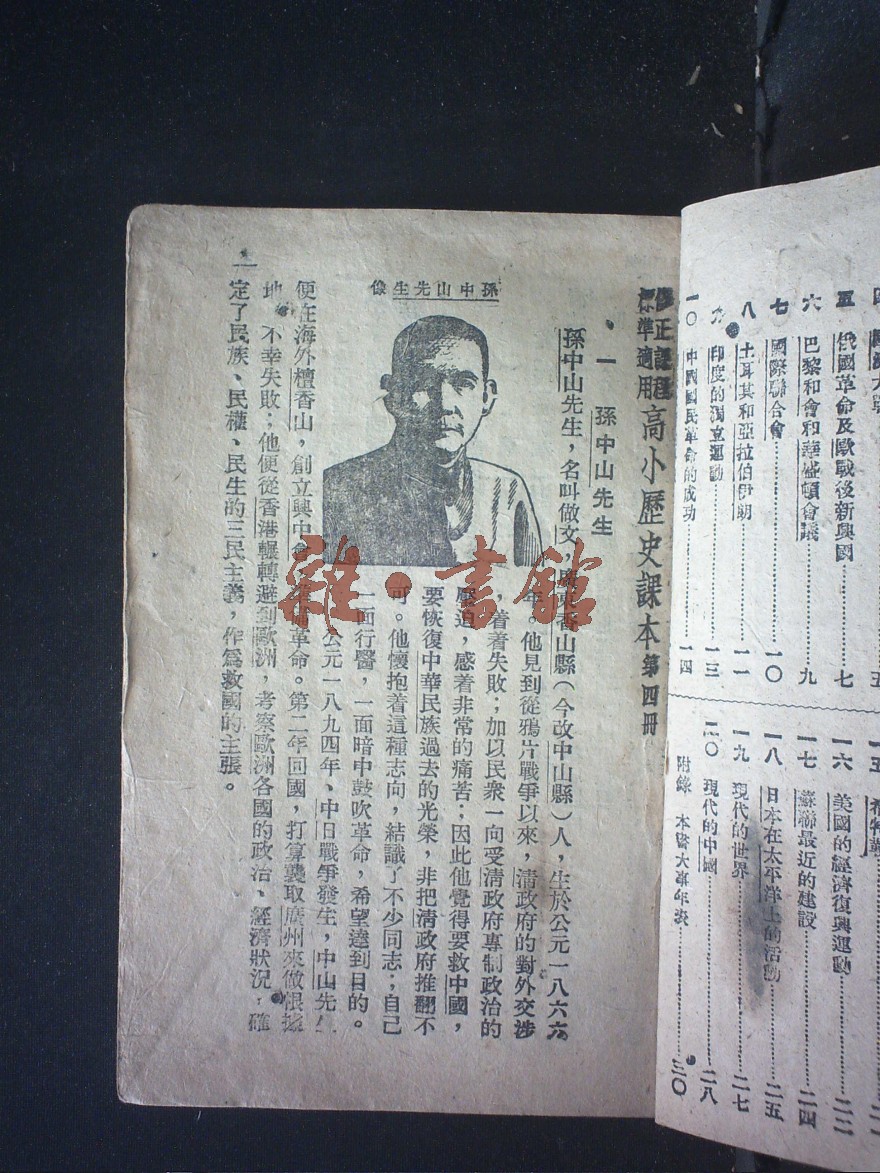 五 俄國革命及歐戰後新興國 七
六 巴黎和會和華盛頓會議 九
七 國際聯合會 一〇
八 土耳其和亞拉伯伊朗 一一
九 印度的獨立運動 一三
一〇 中國國民革命的成功 一四
一六 美國的經濟復興運動 二二
一七 蘇聯最近的建設 二四
一八 日本在太平洋上的活動 二五
一九 現代的世界 二七
二〇 現代的中國 二八
附錄 本書大事年表 三〇
修正課程
標準適用
高小歷史課本 第四冊
一 孫中山先生
孫中山先生，名叫做文，廣東香山縣（今改中山縣）人，生於公元一八六六
年。他見到從鴉片戰爭以來，清政府的對外交涉
，着着失敗；加以民衆一向受清政府專制政治的
壓迫，感着非常的痛苦；因此他覺得要救中國，
要恢復中華民族過去的光榮，非把清政府推翻不
可。他懷抱着這種志向，結識了不少同志；自己
一面行醫，一面暗中鼓吹革命，希望達到目的。
公元一八九四年、中日戰爭發生，中山先生
孫中山先生像
便在海外檀香山，創立興中會，革命。第二年回國，打算襲取廣州來做根據
地，不幸失敗；他便從香港輾轉避到歐洲，考察歐洲各國的政治、經濟狀況，確
定了民族、民權、民生的三民主義，作爲救國的主張。
一
雜·書館